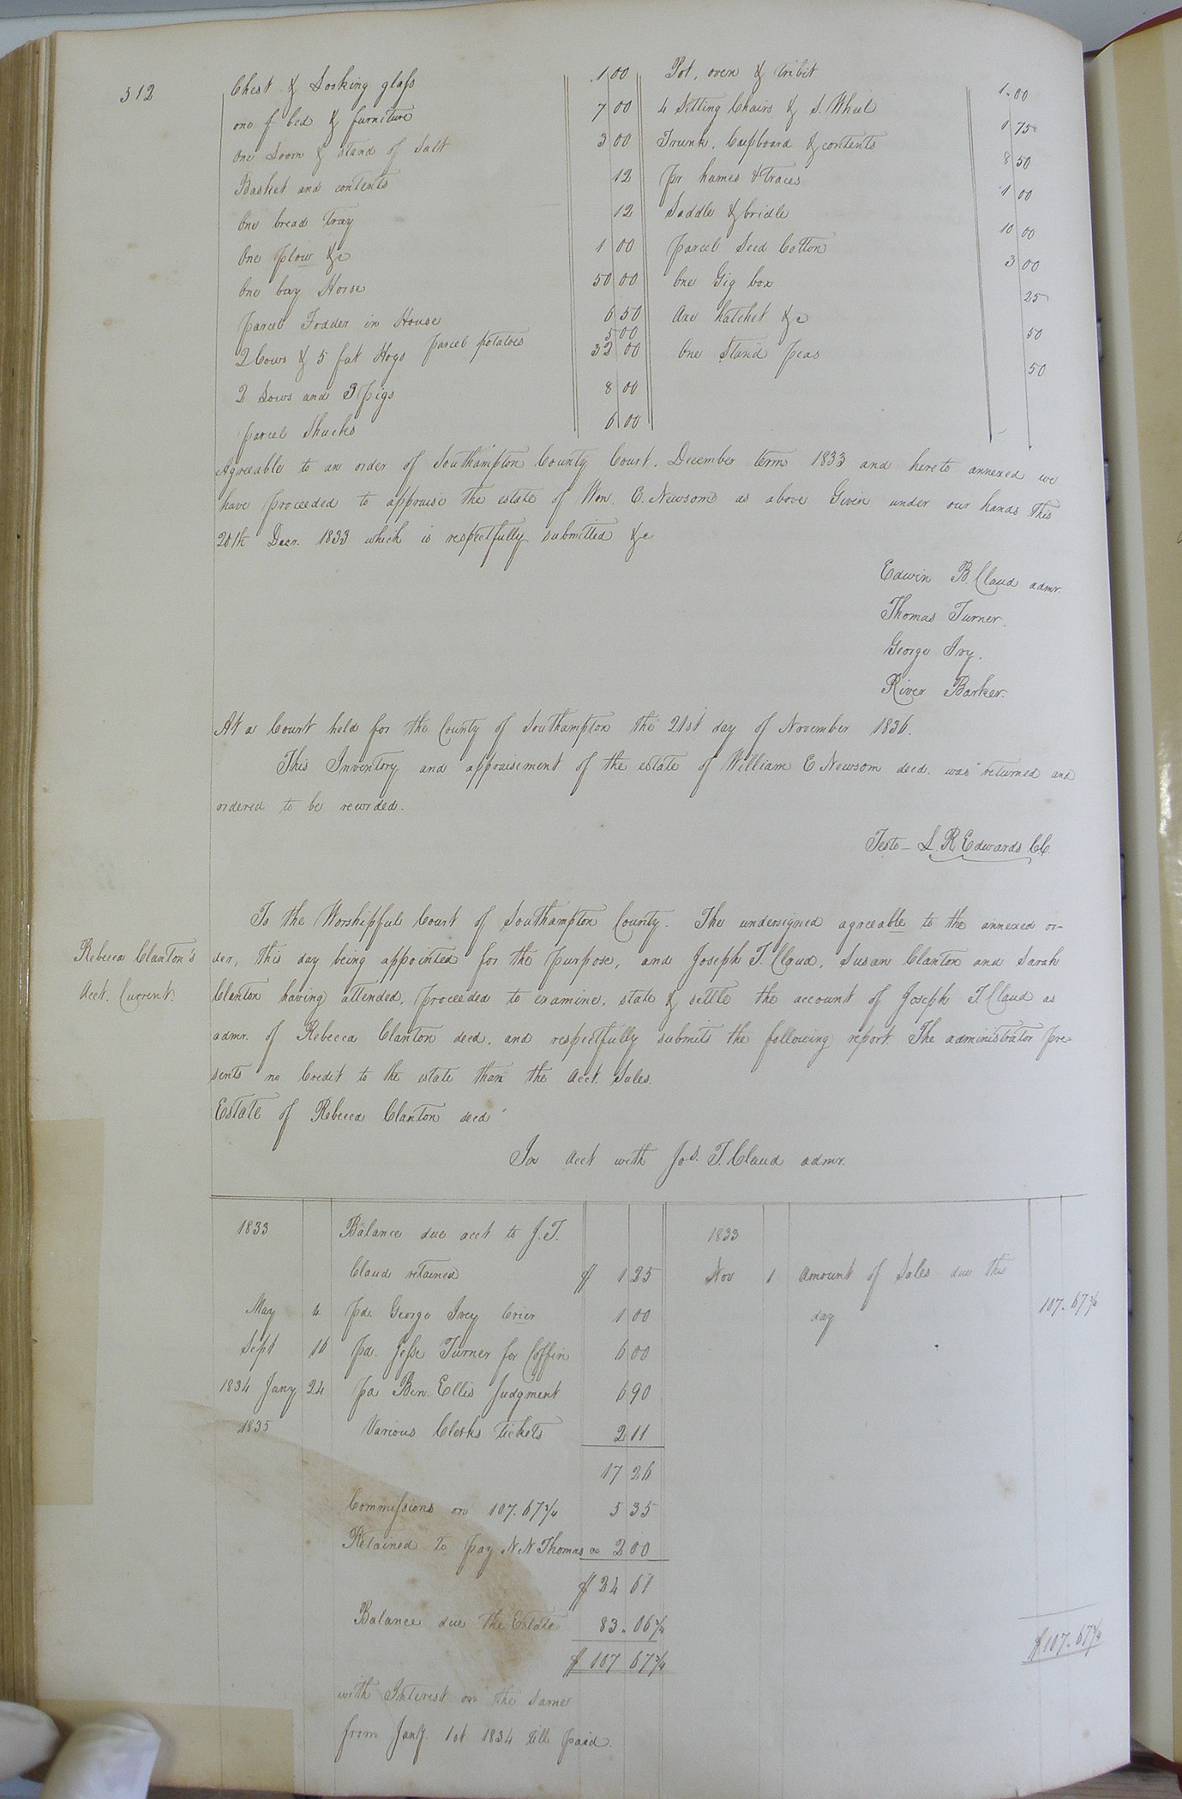 512
Chest & Looking glass 1 00 Pot, oven & tribit 1.00
one f bed & furniture 7 00 4 Sitting Chairs & S. Wheel 1 75
One Loom & stand of Salt 3 00 Trunk, Cupboard & contents 8 50
Basket and contents 12 pr hames & traces 1 00
One bread Tray 12 Saddle & bridle 10 00
One plow &c 1 00 parcel Seed Cotton 3 00
One bay Horse 50 00 One Gig box 25
parcel Fodder in House 6 50 Axe hatchet &c 50
parcel potatoes 5 00
2 Cows & 5 fat Hogs 32 00 One Stand peas 50
2 Sows and 3 pigs 8 00
parcel Shucks 6 00
Agreeable to an order of Southampton County Court, December term 1833 and hereto annexed we
have proceeded to appraise the estate of Wm. E. Newsom as above Given under our hands this
20th Decr. 1833 which is respectfully submitted &c
Edwin B. Claud admr.
Thomas Turner.
George Ivy.
River Barker.
At a Court held for the County of Southampton the 21st day of November 1836.
This Inventory and appraisement of the estate of William E Newsom decd. was returned and
ordered to be recorded.
Teste - L R Edwards CC
To the Worshipful Court of Southampton County. The undersigned agreeable to the annexed or-
Rebecca Clanton's
Acct. Current.
der, this day being appointed for the purpose, and Joseph T. Claud, Susan Clanton and Sarah
Clanton having attended, proceeded to examine, state & settle the account of Joseph T. Claud as
admr. of Rebecca Clanton decd. and respectfully submits the following report. The administrator pre-
sents no Credit to the estate than the Acct. Sales.
Estate of Rebecca Clanton decd
In Acct with Jos. T. Claud admr.
1833 Balance due acct to J. T. 1833
Claud retained $ 1 25 Nov 1 Amount of Sales due this
day 107.67 3/4
May 4 pd. George Ivey Crier 1 00
Sept 16 pd. Jesse Turner for Coffin 6 00
1834 Jany 24 pd Ben. Ellis Judgment 6 90
1835 Various Clerks tickets 2 11
17 26
Commissions on 107.67 3/4 5 35
Retained to pay N N Thomas 2 00
$ 24 61
Balance due the Estate 83.06 3/4
$ 107 67 3/4 $107.67 3/4
with Interest on the same
from Jany. 1st 1834 till paid.